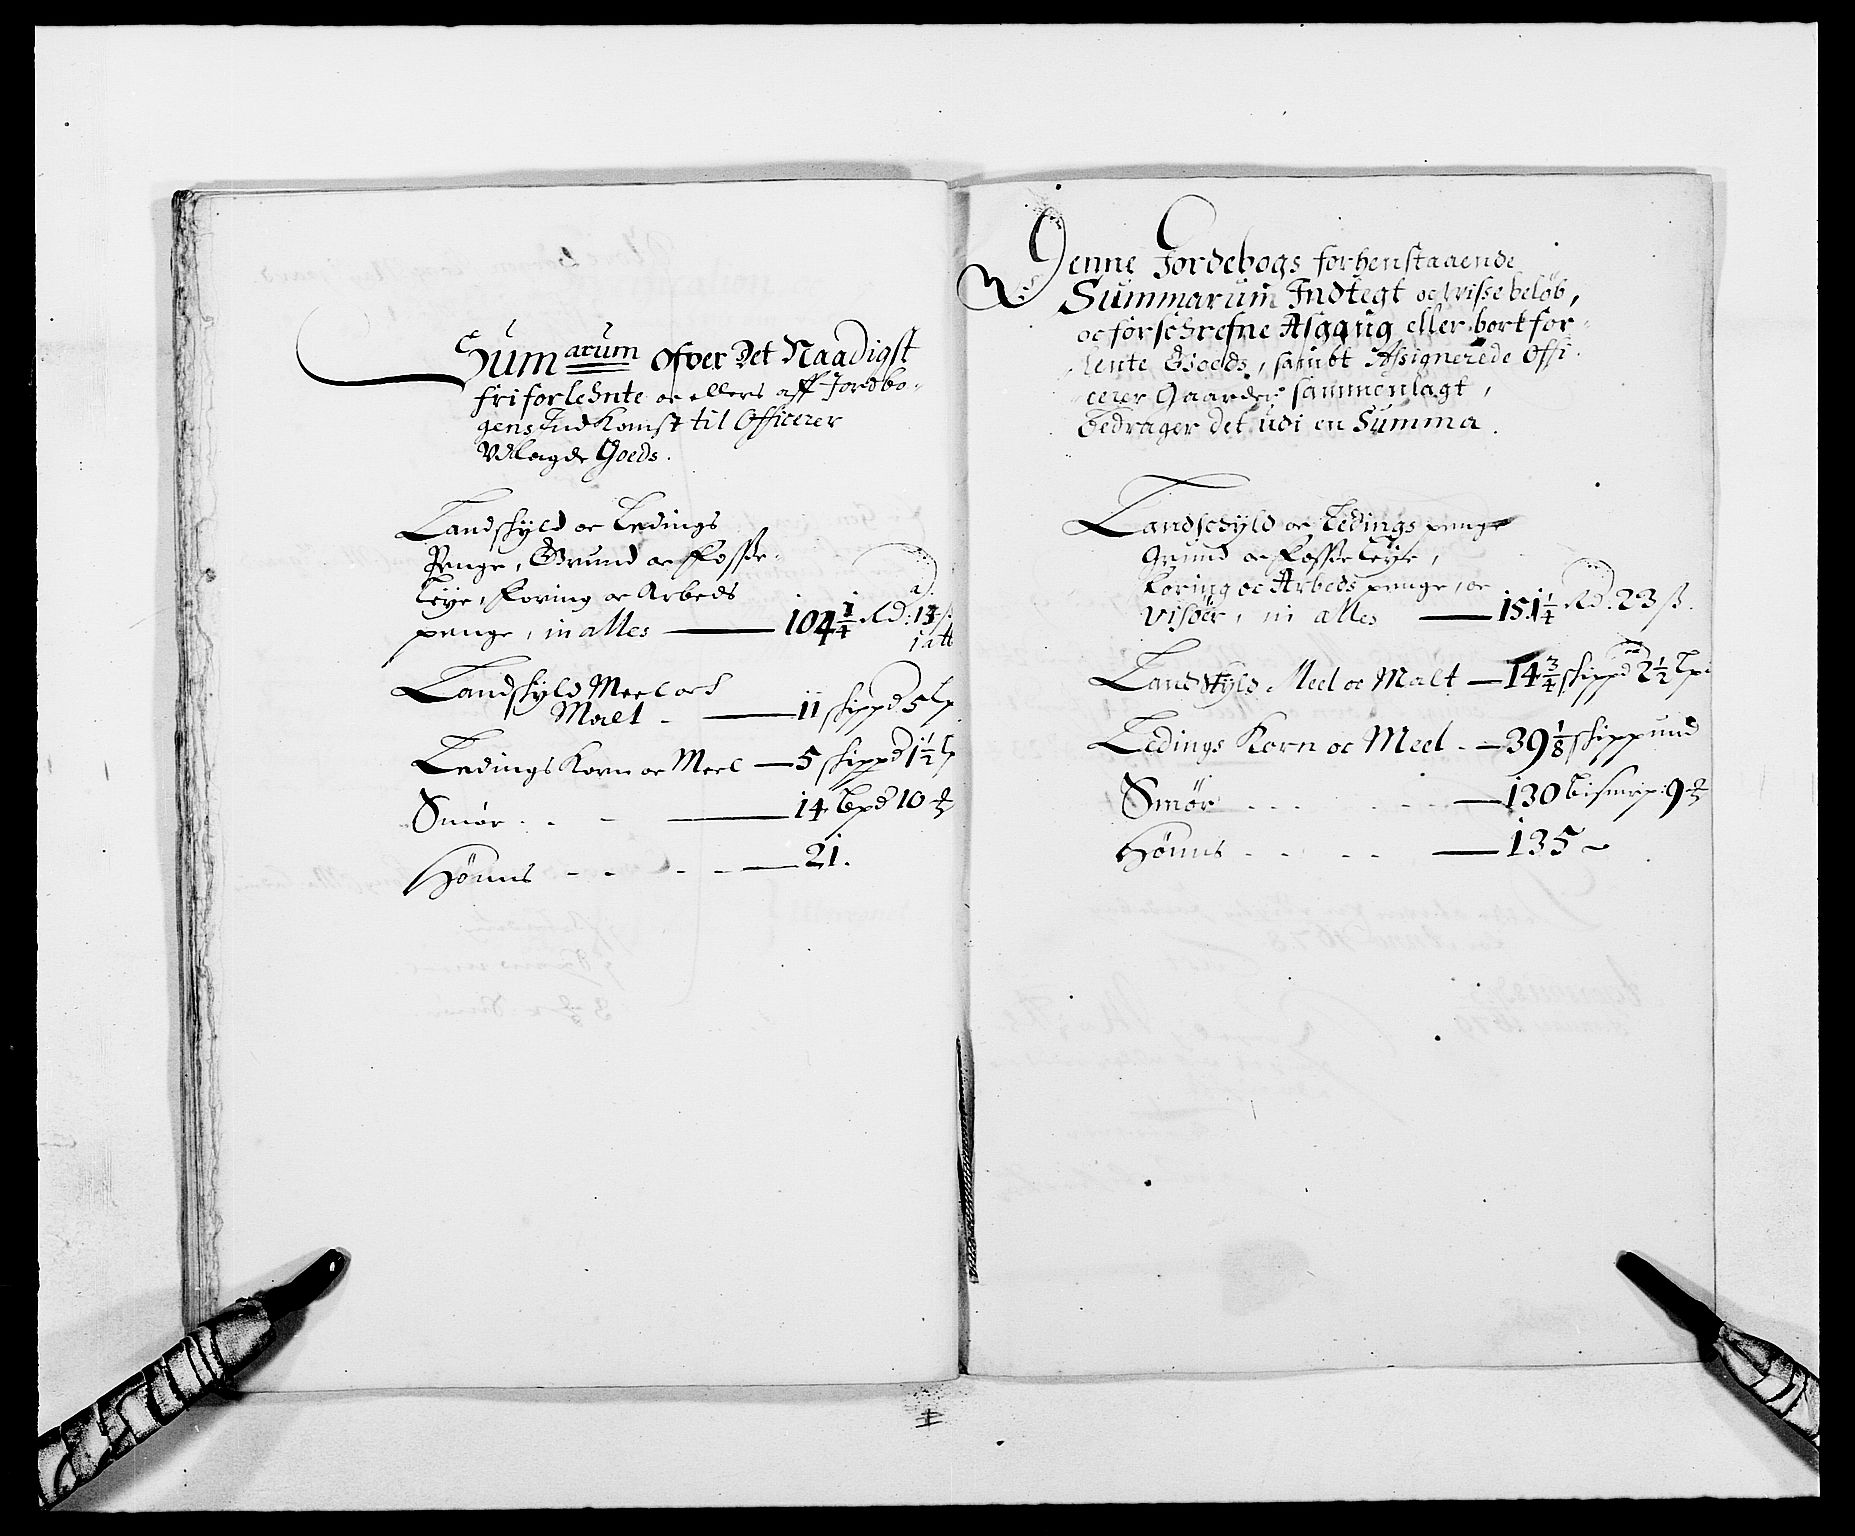 Sumarum ofver Det Naadigst
friforlehnte oc ellers aff Jordbo-
gens Indkomst til Officerer
Vdlagde Goeds.
Landskyld oc Ledings
Penge, Grund oc Fosse-
Leye, Foring oc Arbeds
penge, in alles — 104 1/4 Rd: 13 ß:
1 alb
Landskyld Meel och
Malt - — 11 skippd 5 Lp
Ledings Korn oc Meel — 5 skippd 1 1/2 Lp
Smør - - — 14 Bpd 10
Hønns - - - - — 21.
Denne Jordebogs forhenstaaende
Summarum Indtegt oc visse beløb,
oc forschrefne Afgang eller bortfor-
lente Goeds, sambt Assignerede Offi-
cerer Gaarder sammenlagt,
Bedrager det udi en Summa.
Landschyld oc Ledings penge
Grund oc Fosse Leye,
Foring oc Arbeds penge, oc
Visøer, in alles — 151 1/4 Rd: 23 ß.
Landskyld Meel oc Malt — 14 3/4 skippd 2 1/2 Lp:
Ledings Korn oc Meel - — 39 1/8 skippund
Smør - - - - — 130 bismrp: 9
Hønns - - - - — 135 ~